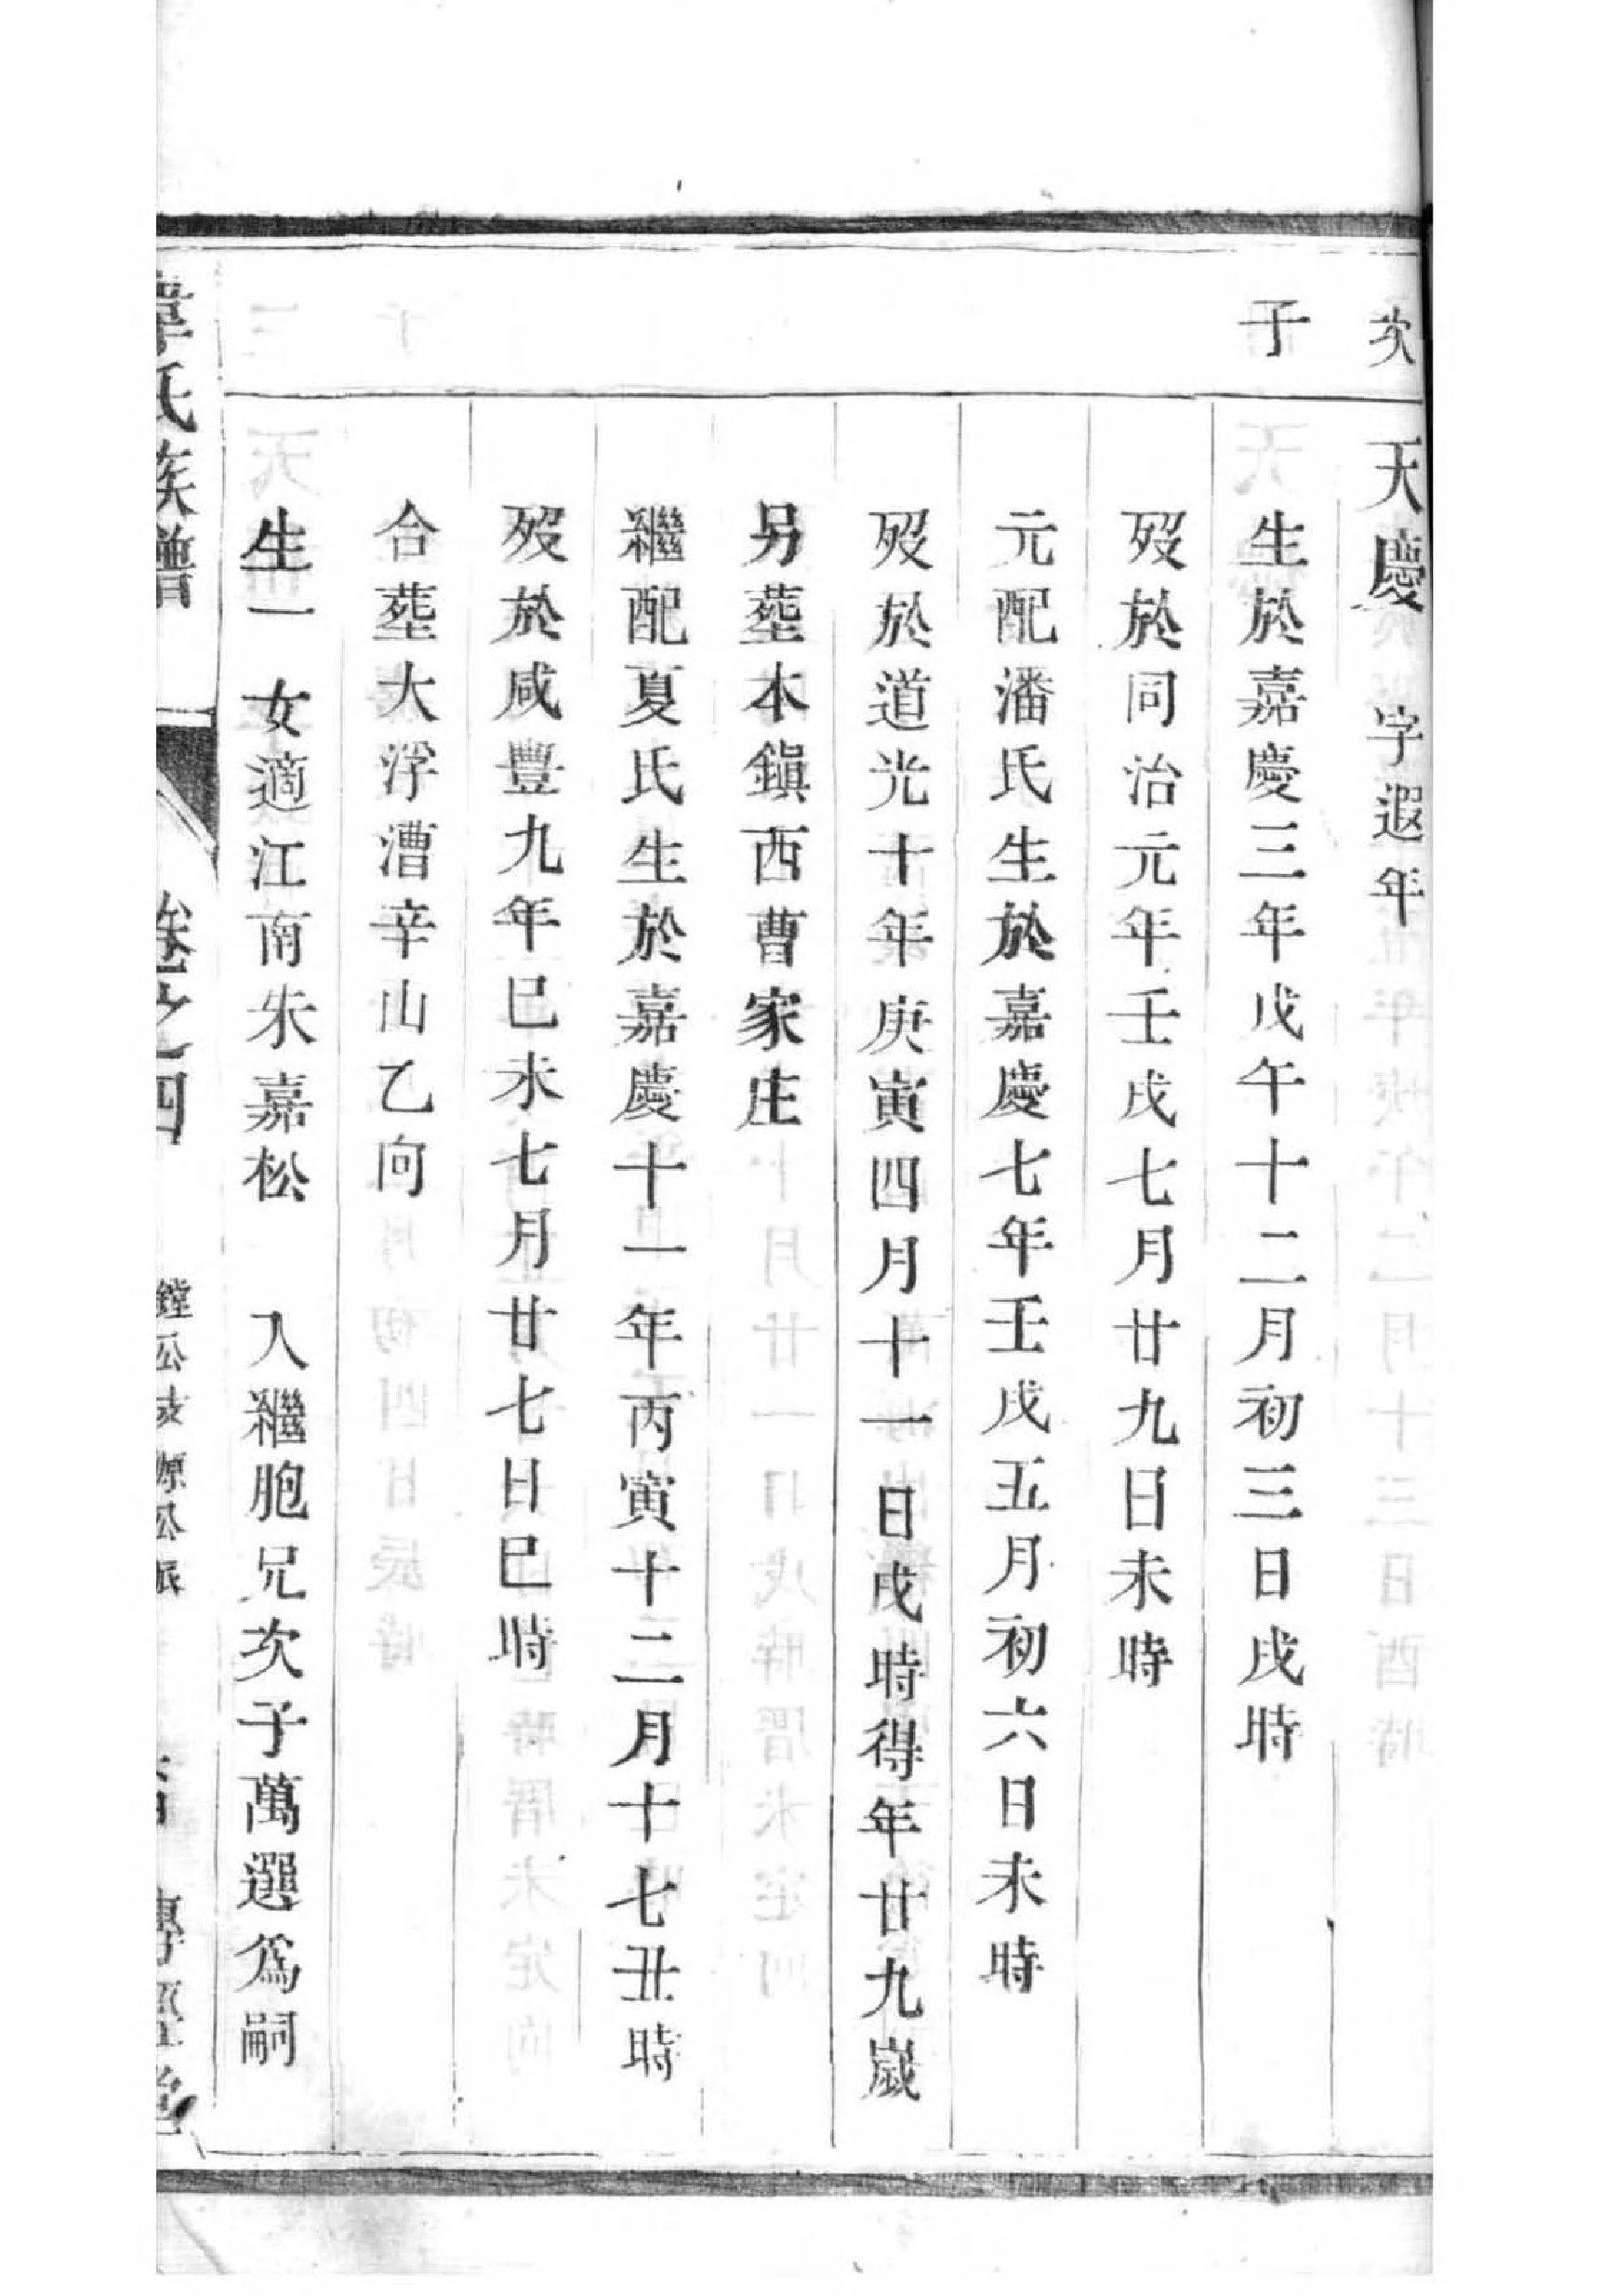 次
子
天慶 字遐年
生於嘉慶三年戊午十二月初三日戌時
歿於同治元年壬戌七月廿九日未時
元配潘氏生於嘉慶七年壬戌五月初六日未時
歿於道光十年庚寅四月十一日戌時得年廿九嵗
另塟本鎭西曹家庄
繼配夏氏生於嘉慶十一年丙寅十二月十七丑時
歿於咸豐九年已未七月廿七日巳時
合塟大浮漕辛山乙向
生一 女適江南朱嘉松 入繼胞兄次子萬選爲嗣
韋氏族譜 卷之四